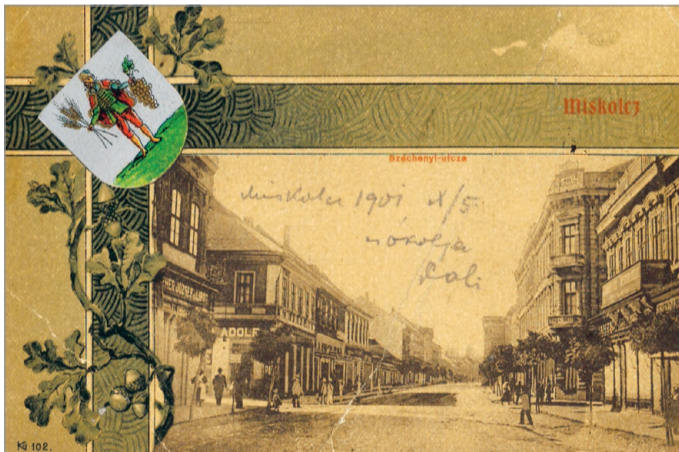 Miskolcz
Széchenyi-utcza
Miskolcz 1901 X/5
csókolja
ADOLF
Kü 102.